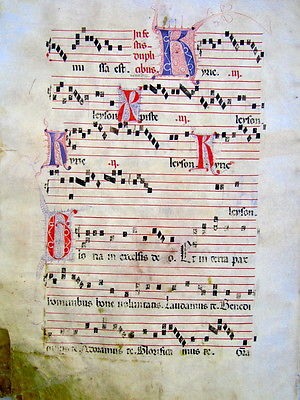 In fe
stis
dupli
mi ssa est. cibus. Kyrie. .iii.
leyson Xpiste .iii. leyson
Kyrie .iii. leyson Kyrie
leyson.
Glo ria in excelsis de o. Et in terra pax
hominibus bone voluntatis. Laudamus te. Benedi
te. Adoramus te. Glorifica mus te. Gra